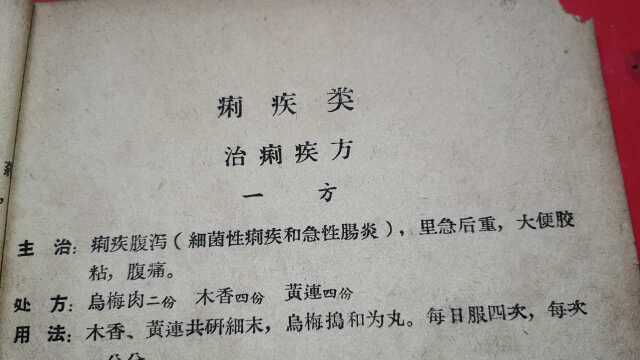 痢疾类
治痢疾方
一方
主治：痢疾腹泻（細菌性痢疾和急性腸炎），里急后重，大便胶
粘，腹痛。
处方：烏梅肉二份 木香四份 黃連四份
用法：木香、黃連共研細末，烏梅搗和为丸。每日服四次，每次